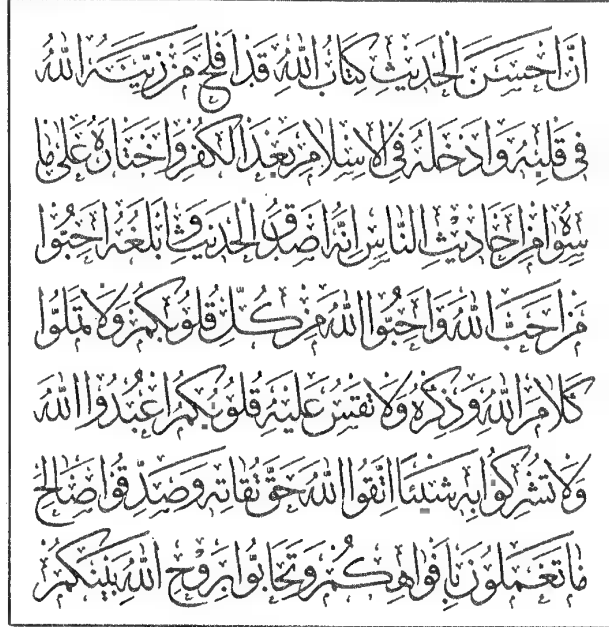 اِنَّ اَحْسَنَ الْحَدِيثِ كِتَابُ اللهِ قَدْ اَفْلَحَ مَنْ زَيَّنَهُ اللهُ
فِي قَلْبِهِ وَاَدْخَلَهُ فِي الْاِسْلَامِ بَعْدَ الْكُفْرِ وَاخْتَارَهُ عَلَى مَا
سِوَاهُ مِنْ اَحَادِيثِ النَّاسِ اِنَّهُ اَصْدَقُ الْحَدِيثِ وَاَبْلَغُهُ اَحِبُّوا
مَنْ اَحَبَّ اللهَ وَاَحِبُّوا اللهَ مِنْ كُلِّ قُلُوبِكُمْ وَلَا تَمَلُّوا
كَلَامَ اللهِ وَذِكْرَهُ وَلَا تَقْسُ عَلَيْهِ قُلُوبُكُمْ اُعْبُدُوا اللهَ
وَلَا تُشْرِكُوا بِهِ شَيْئًا اِتَّقُوا اللهَ حَقَّ تُقَاتِهِ وَصَدِّقُوا صَالِحَ
مَا تَعْمَلُونَ بِاَفْوَاهِكُمْ وَتَحَابُّوا بِرَوْحِ اللهِ بَيْنَكُمْ